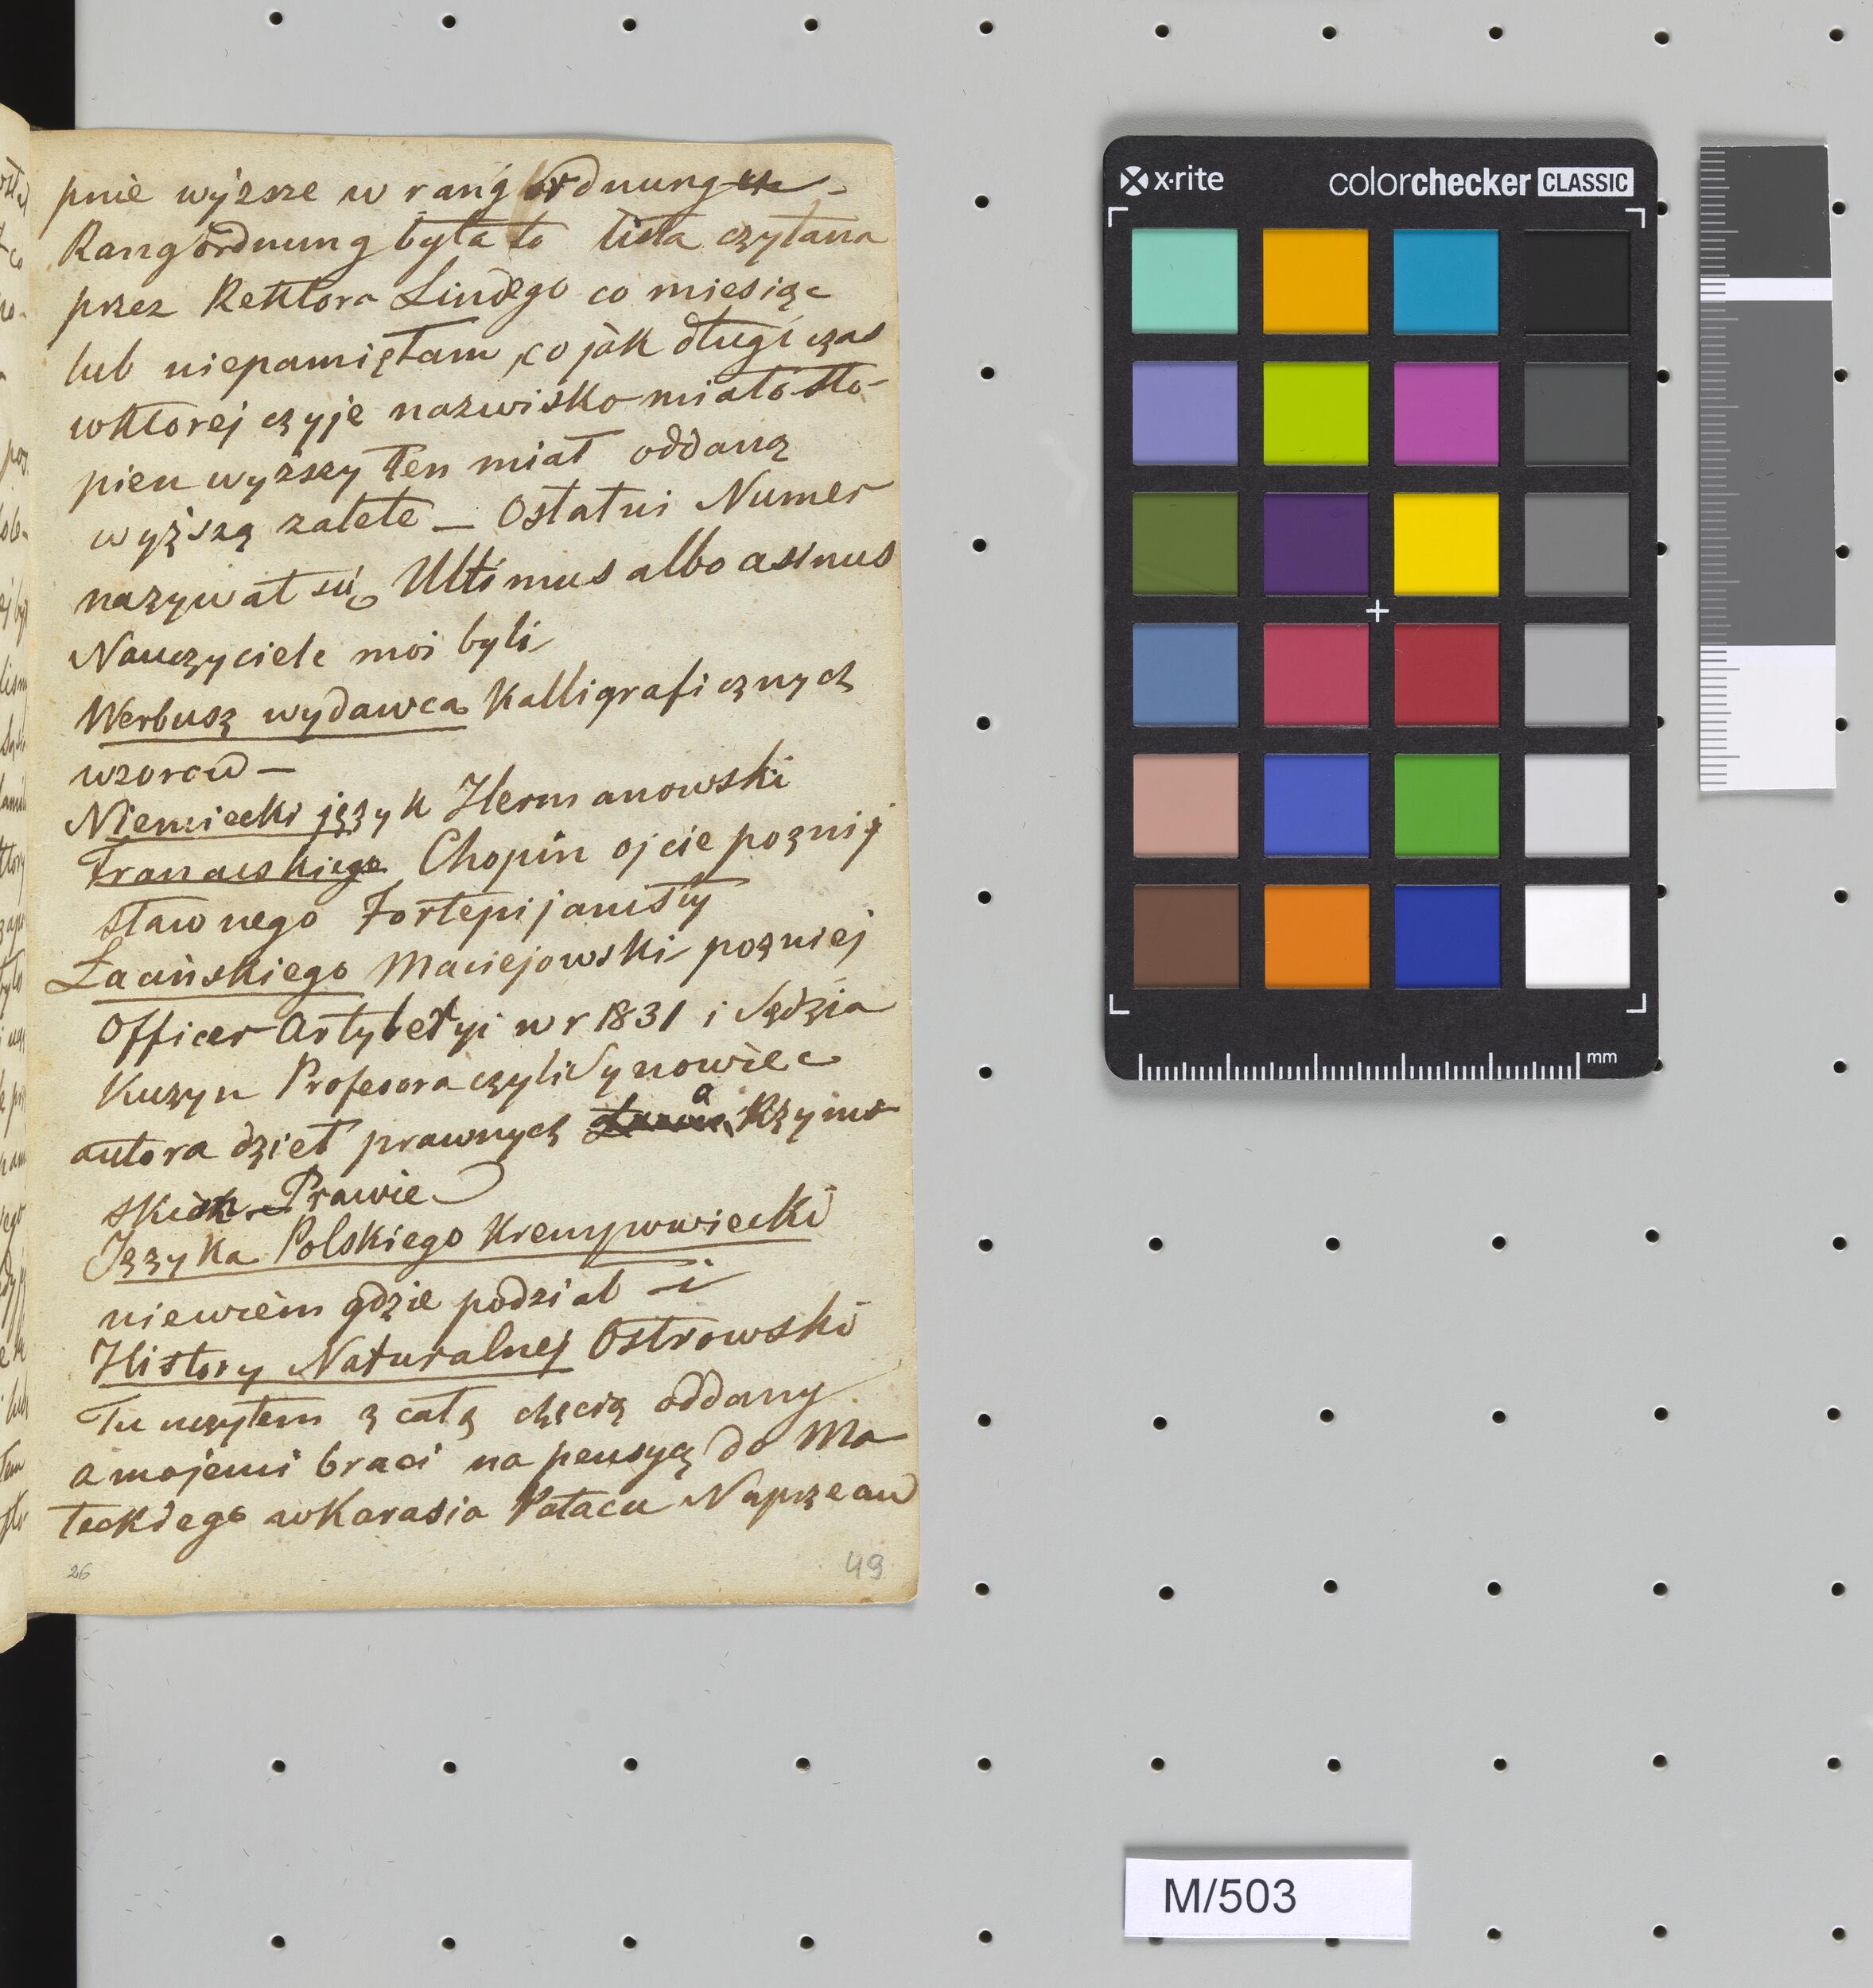 pnie wyższe w rang ordnung
Rangordnung była to lista czytana
przez Rektora Lindego co miesiąc
lub niepamiętam, co jak długi czas
wktorej czyje nazwisko miało sto-
pien wyższy ten miał oddaną
wyższą zaletę — Ostatni Numer
nazywał się Ultimus albo asinus
Nauczyciele moi byli
Werbusz wydawca Kalligraficznych
wzorow —
Niemiecki język Hermanowski
Francuskiego Chopin ojcie poznij
sławnego Fortepijanisty
Łacińskiego Maciejowski pozniej
Officer Artyleryi w r 1831 i Sędzia
Kuzyn Profesora czyli Synowiec
autora dzieł prawnych a Rzyms
skich Prawie
Języka Polskiego
niewiem gdzie podział
History Naturalnej Ostrowski
Tu uczyłem z całą chęcią oddany
a mojemi braci na pensyą do Ma
teckiego w Karasia Pałacu Naprzeciw
26
49
x·rite
colorchecker CLASSIC
mm
M/503